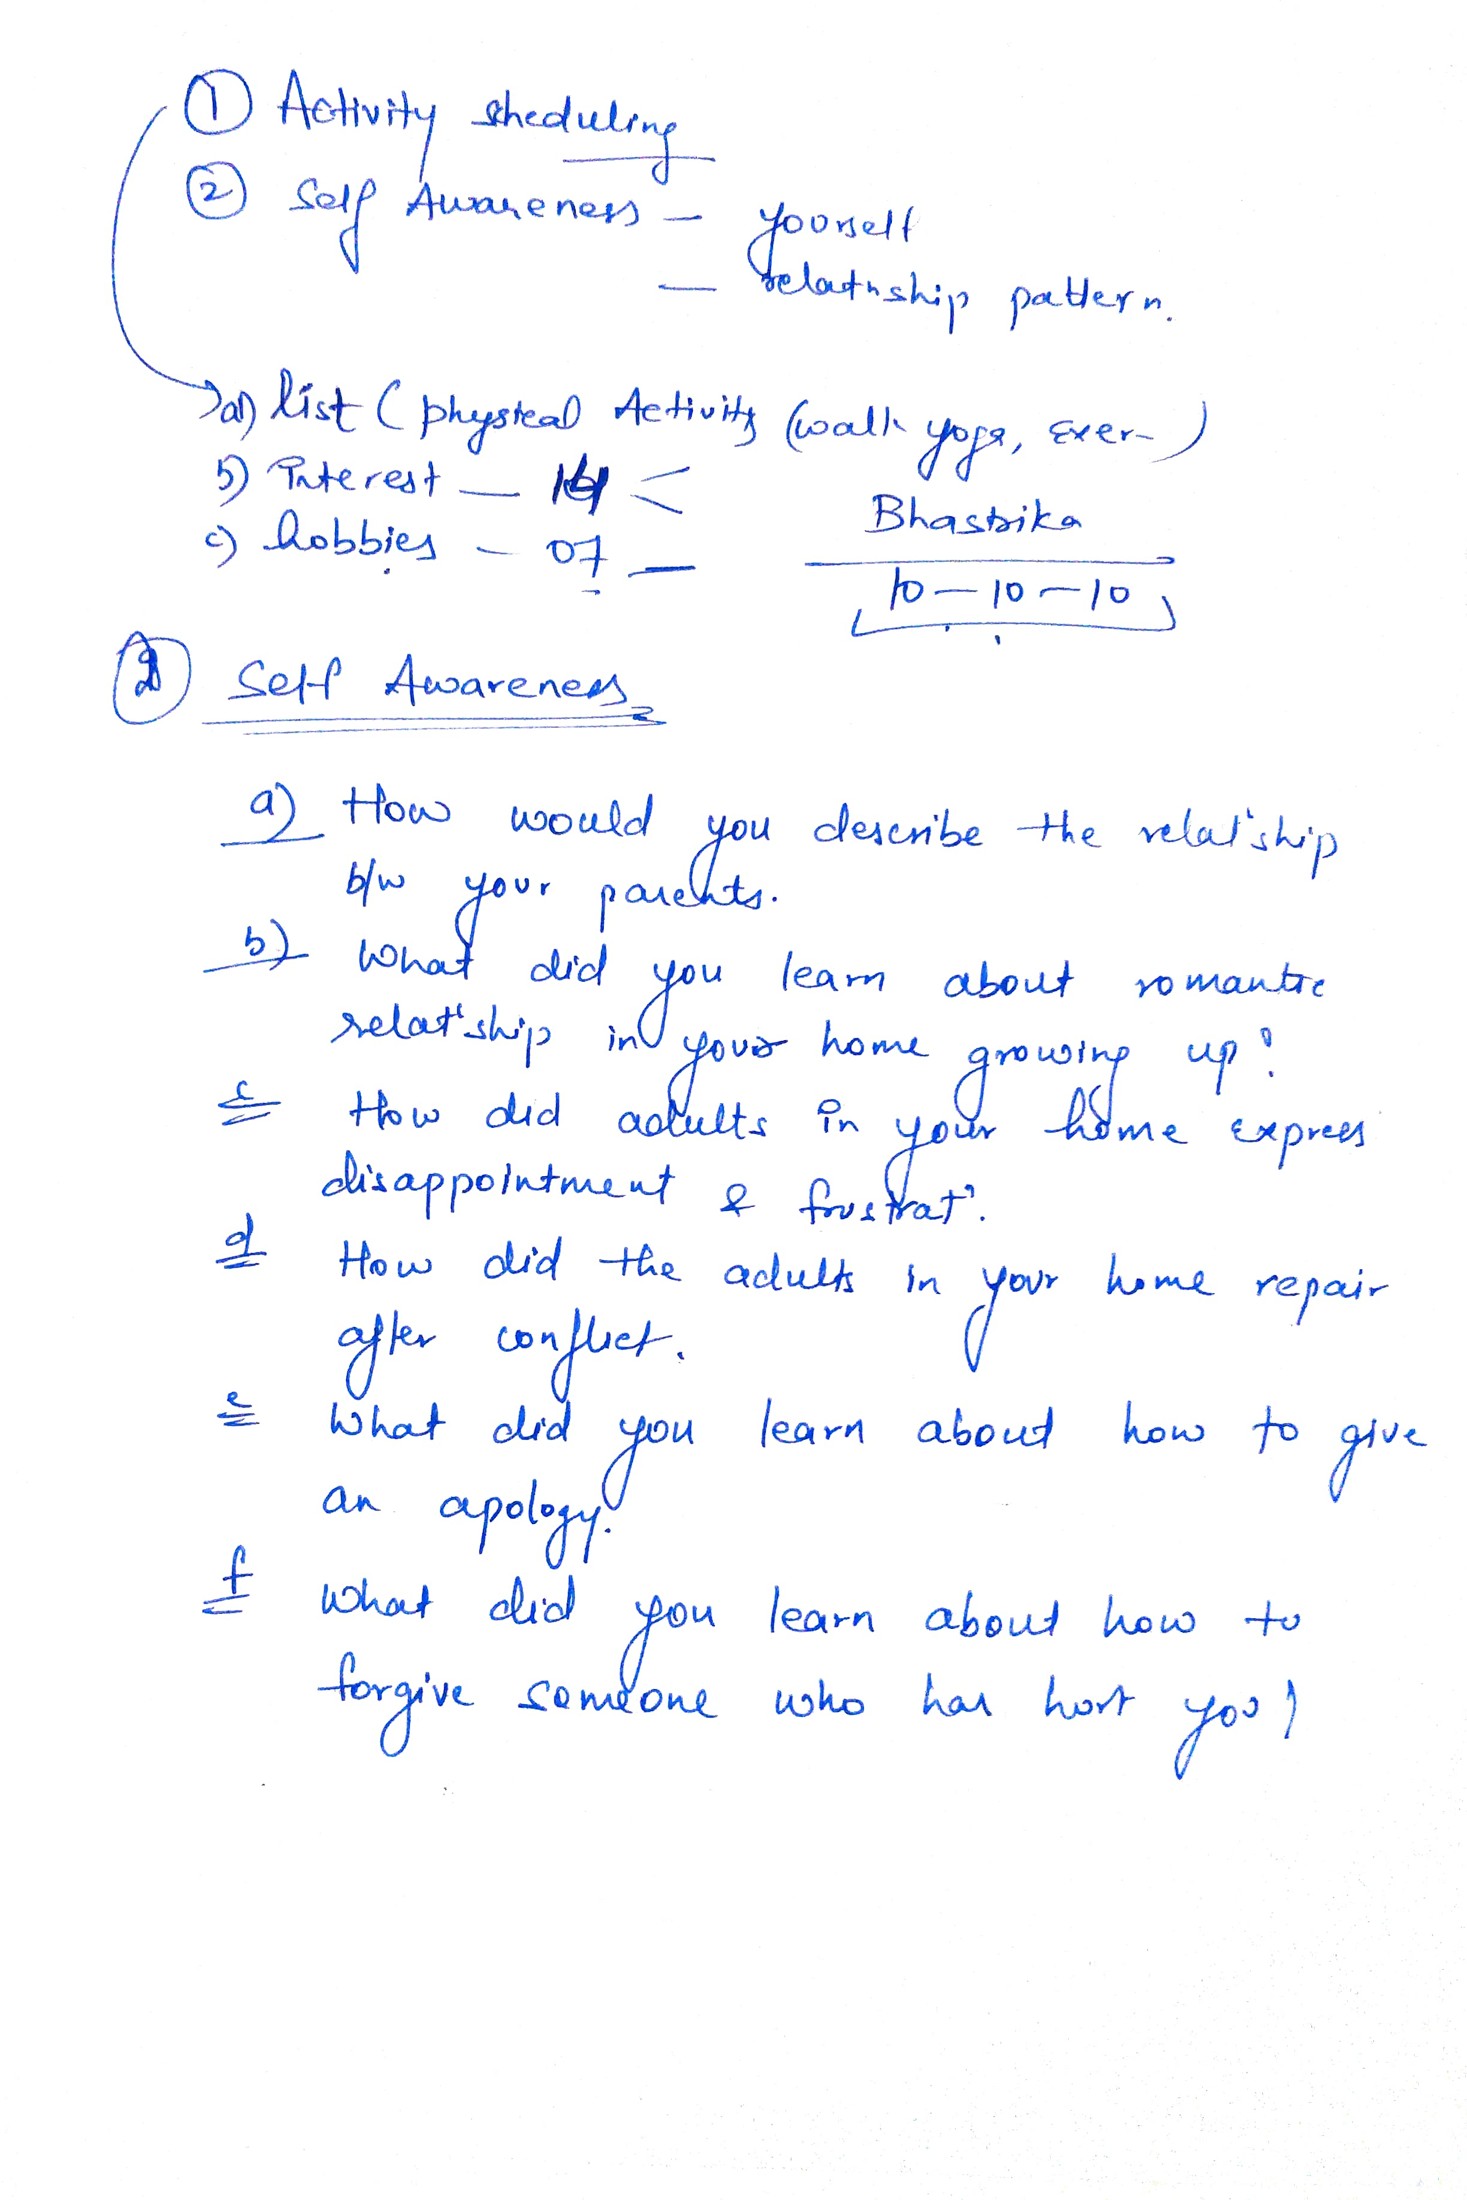 ① Activity sheduling
② Self Awareness – yourself
– relatnship pattern.
a) list ( physical Activity (walk yoga, Exer– )
b) Interest –
c) hobbies – 07 –
Bhastrika
10 – 10 – 10
② Self Awareness
a) How would you describe the relat'ship
b/w your parents.
b) What did you learn about romantic
relat'ship in your home growing up?
c How did adults in your home express
disappointment & frustrat'.
d How did the adults in your home repair
after conflict.
e What did you learn about how to give
an apology.
f What did you learn about how to
forgive someone who has hurt you?